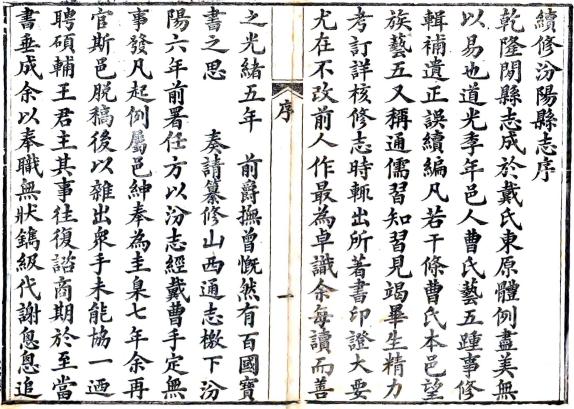 續修汾陽縣志序
乾隆閒縣志成於戴氏東原體例盡美無
以易也道光季年邑人曹氏藝五踵事修
輯補遺正誤續編凡若干條曹氏本邑望
族藝五又稱通儒習知習見竭畢生精力
考訂詳核修志時輒出所著書印證大要
尤在不改前人作最為卓識余每讀而善
序
一
之光緒五年 前爵撫曾慨然有百國寶
書之思 奏請纂修山西通志檄下汾
陽六年前署任方以汾志經戴曹手定無
事發凡起例屬邑紳奉為圭臬七年余再
官斯邑脫稿後以雜出衆手未能協一迺
聘碩輔王君主其事往復諮商期於至當
書垂成余以奉職無狀鐫級代謝悤悤追